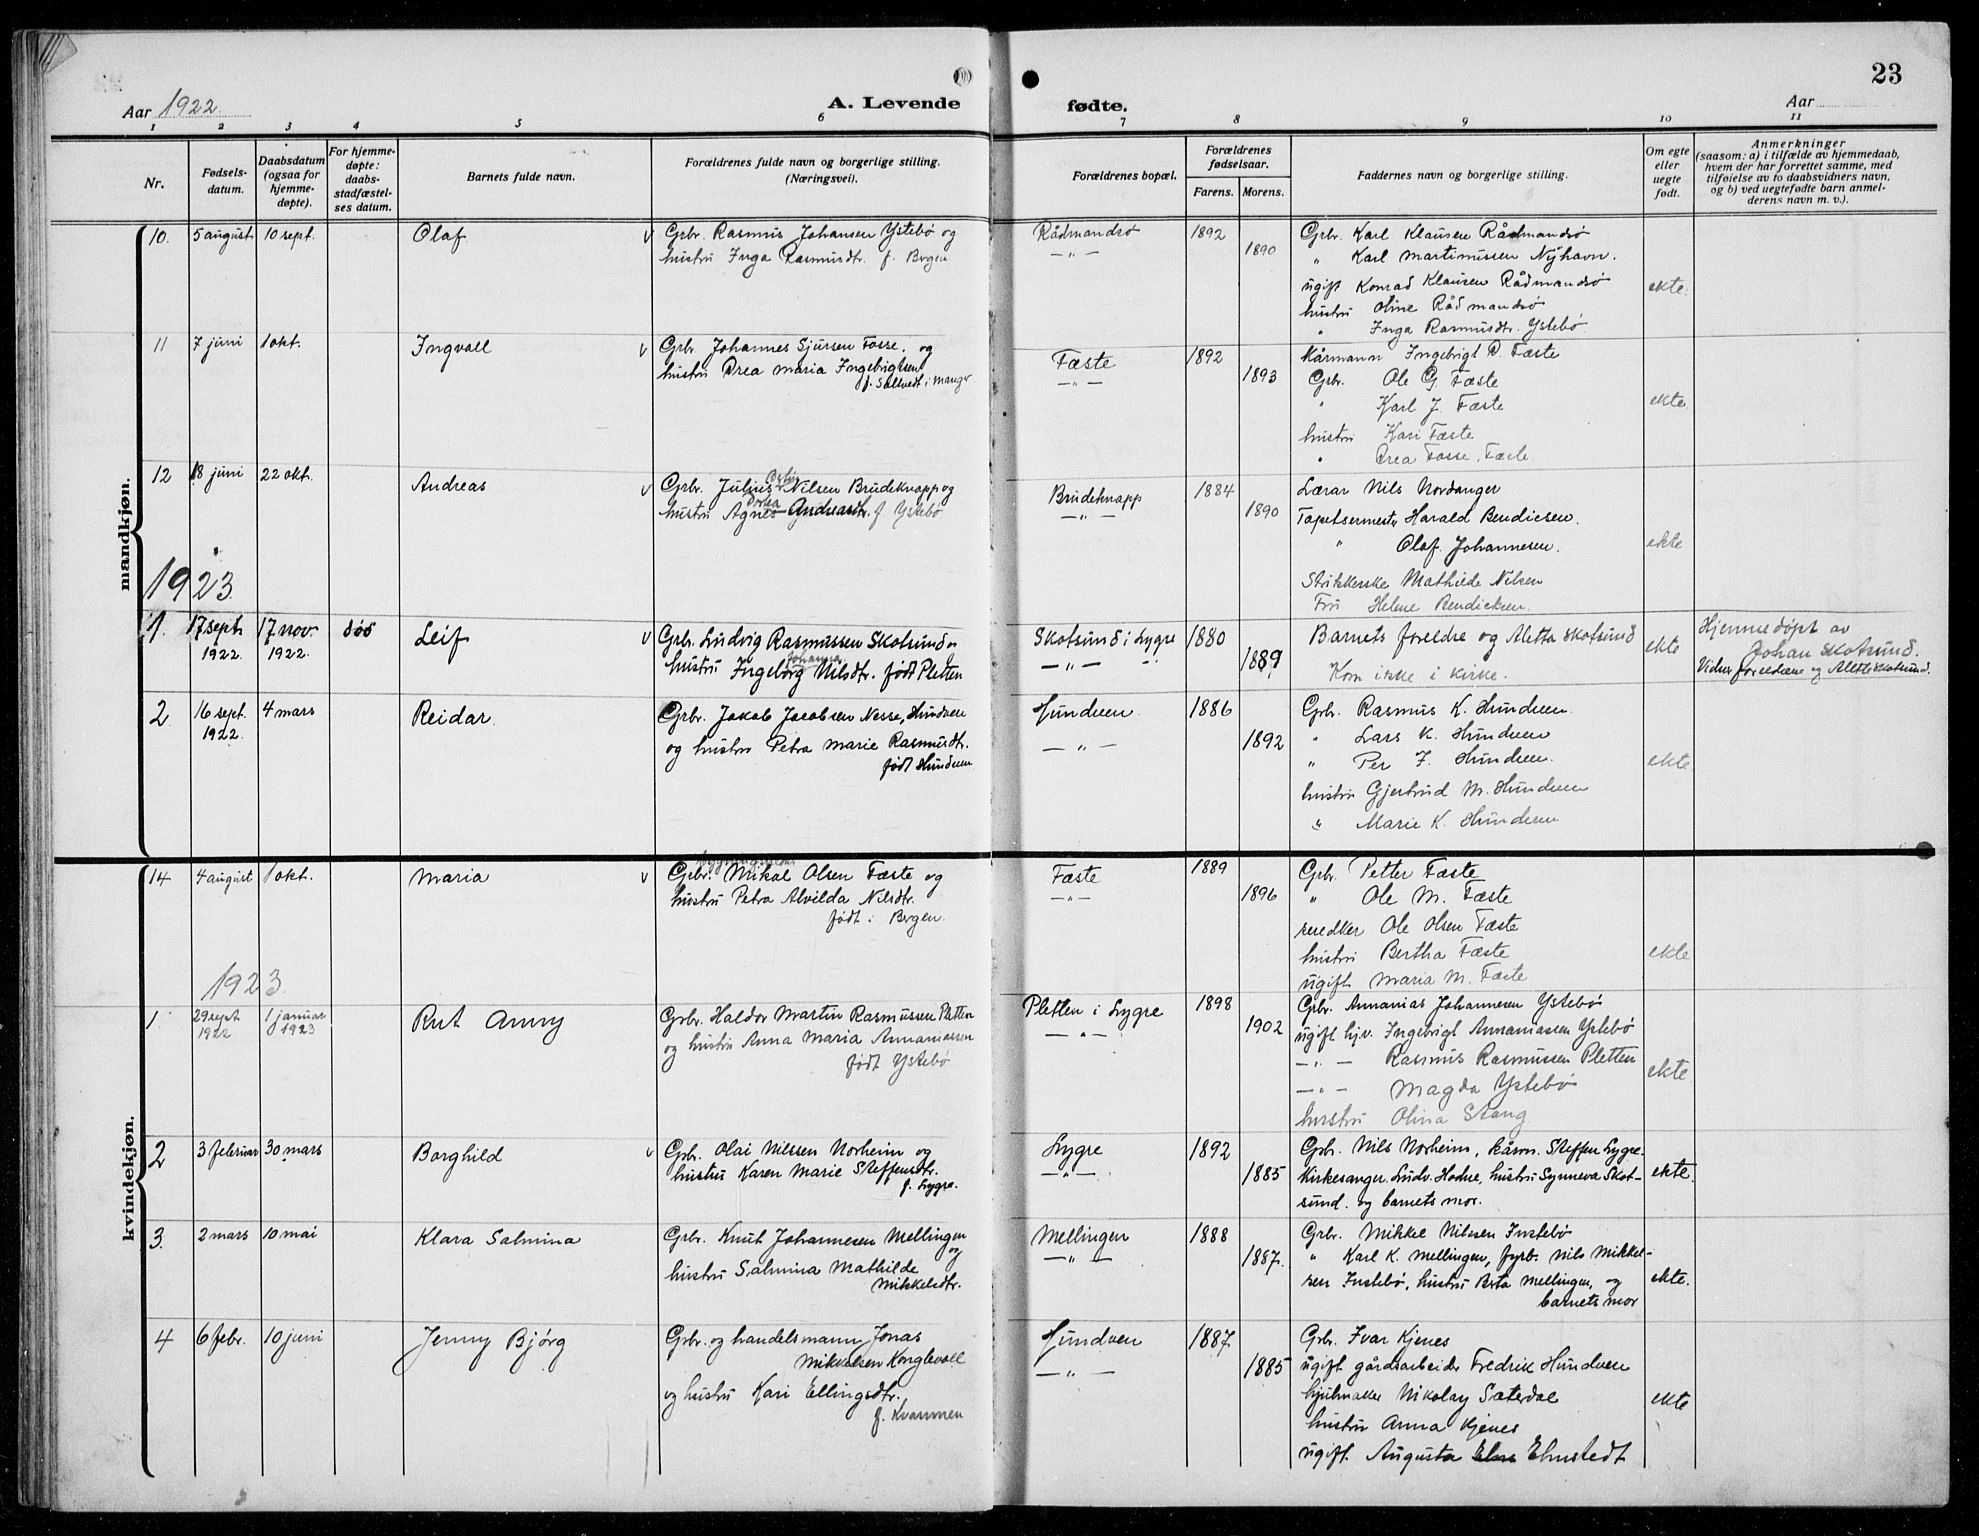 23
Aar 1922
A. Levende
fødte.
Aar
1 2 3 4 5 6 7 8 9 10 11
Nr.
Fødsels-
datum.
Daabsdatum
(ogsaa for
hjemme-
døpte).
For hjemme-
døpte:
daabs-
stadfæstel-
ses datum.
Barnets fulde navn.
Forældrenes fulde navn og borgerlige stilling.
(Næringsvei).
Forældrenes bopæl.
Forældrenes
fødselsaar.
Farens. Morens.
Faddernes navn og borgerlige stilling.
Om egte
eller
uegte
født.
Anmerkninger
(saasom: a) i tilfælde av hjemmedaab,
hvem der har forrettet samme, med
tilføielse av to daabsvidners navn,
og b) ved uegtefødte barn anmel-
derens navn m. v.).
mandkjøn.
10. 5 august 10 sept. Olaf v
Grbr. Rasmus Johansen Ystebø og
hustru Inga Rasmusdtr. f. Bergen
Rådmandsø 1892
— " — 1890
Grbr. Karl Klausen Rådmandsø
" Karl Martinussen Nyhavn.
ugift Konrad Klausen Rådmandsø
hustru Oline Rådmandsø
" Inga Rasmusdtr. Ystebø
ekte.
11 7 juni 1 okt. Ingvall v
Grbr. Johannes Sjursen Fosse. og
hustru Drea Maria Ingebrigtsen
f. Sallvedt i Manger
Fæste 1892
— " — 1893
Kårmann Ingebrigt D. Fæste
Grbr. Ole G. Fæste
" Karl J. Fæste
hustru Kari Fæste
" Drea Fosse. Fæste
ekte.
12 18 juni 22 okt. Andreas v
Grbr. Julius Nilsen Brudeknapp og
Dortea
hustru Agnes Andreasdtr. f Ystebø
Brudeknapp 1884
— " — 1890
Lærar Nils Nordanger
Tapetsermester Harald Bendicsen.
" Olaf Johannesen.
Strikkerske Mathilde Nilsen
Fru Helene Bendicksen.
ekte
1923.
1. 17 sept. 17 nov. død Leif v
1922. 1922.
Grbr. Ludvig Rasmussen Skotsund og
Johanna
hustru Ingebörg Nilsdtr. født Pletten
Skotsund i Lygre 1880
— " — " 1889
Barnets foreldre og Aletta Skotsund
Kom ikke i kirke.
ekte
Hjemmedøpt av
Johan Skotsund.
Vidner foreldrene og Aletta Skotsund.
2. 16 sept. 4 mars Reidar.
1922.
Grbr. Jakob Jacobsen Nesse, Hundven
og hustru Petra Marie Rasmusdtr.
født Hundven
Hundven 1886
— " — 1892
Grbr. Rasmus K. Hundven.
" Lars K. Hundven
" Per J. Hundven.
hustru Gjertrud M. Hundven
" Marie K. Hundven
ekte
kvindekjøn.
14 4 august 1 okt. Maria v
Grbr. Mikal Olsen Fæste og
hustru Petra Alvilda Nilsdtr.
født i Bergen.
Fæste 1889
— " — 1896
Grbr. Petter Fæste
" Ole M. Fæste
snedker Ole Olsen Fæste
hustru Bertha Fæste
ugift Maria M. Fæste
ekte
1923.
1 29 sept 1 januar Rut Anny
1922 1923
Grbr. Haldor Martin Rasmussen Pletten
og hustru Anna Maria Annaniassen
født Ystebø
Pletten i Lygre 1898
— " — 1902
Grbr. Annanias Johannesen Ystebø
ugift hjv. Ingebrigt Annaniassen Ystebø
— " — Rasmus Rasmussen Pletten
— " — Magda Ystebø
hustru Olina Stang
ekte
2 3 februar 30 mars Borghild v
Grbr. Olai Nilssen Norheim og
hustru Karen Marie Steffensdtr.
f. Lygre.
Lygre 1892
— " — 1885
Grbr. Nils Norheim, kårm. Steffen Lygre.
Kirkesanger. Ludv. Hodne, hustru Synneva Skot-
sund. og barnets mor.
ekte.
3. 2 mars 10 mai Klara Salmina
Grbr. Knut Johannesen Mellingen
og
hustru Salmina Mathilde
Mikkelsdtr.
Mellingen 1888
— " — 1887.
Grbr. Mikkel Nilssen Instebø
" Karl K. Mellingen, fyrb. Nils Mikkel-
sen Instebø, hustru Berta Mellingen, og
barnets mor
ekte.
4 6 febr. 10 juni Jenny Bjørg
Grbr. og handelsmann Jonas
Mikkelsen Konglevoll
og hustru Kari Ellingsdtr.
f. Kvammen
Hundven 1887
— " — 1885
Grbr. Ivar Kjenes
ugift gårdsarbeider Fredrik Hundven
hjulmaker Nikolay Sæterdal
hustru Anna Kjenes
ugift. Augusta Elmstedt
ekte